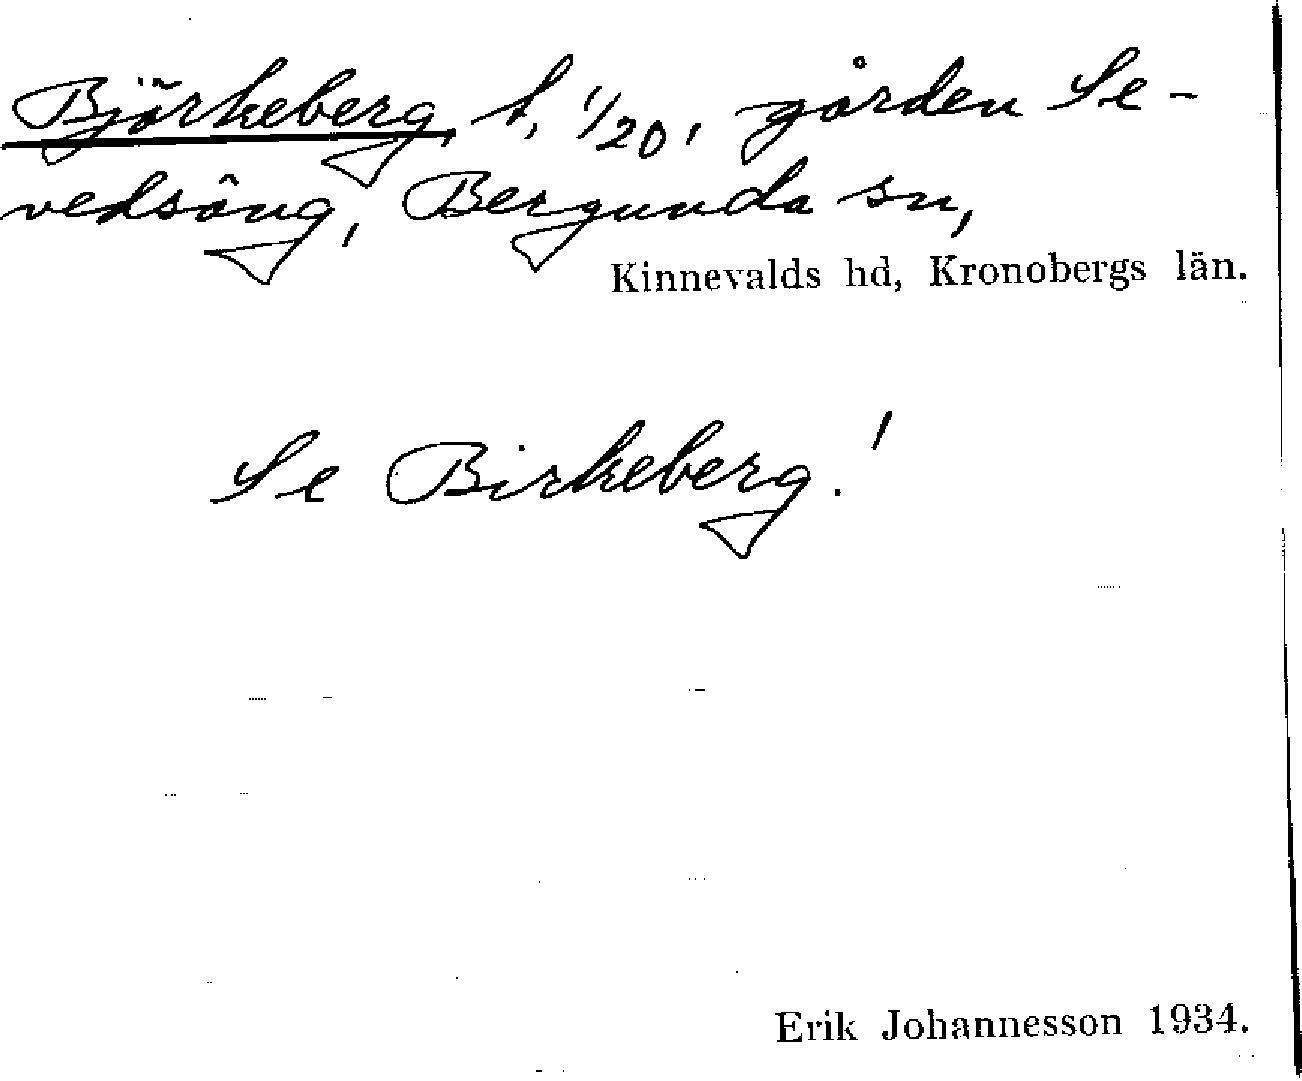 Björkeberg, t, 1/20, gården Se-
vedsäng, Bergunda sn,
Kinnevalds hd, Kronobergs län.
Se Birkeberg!
Erik Johannesson 1934.